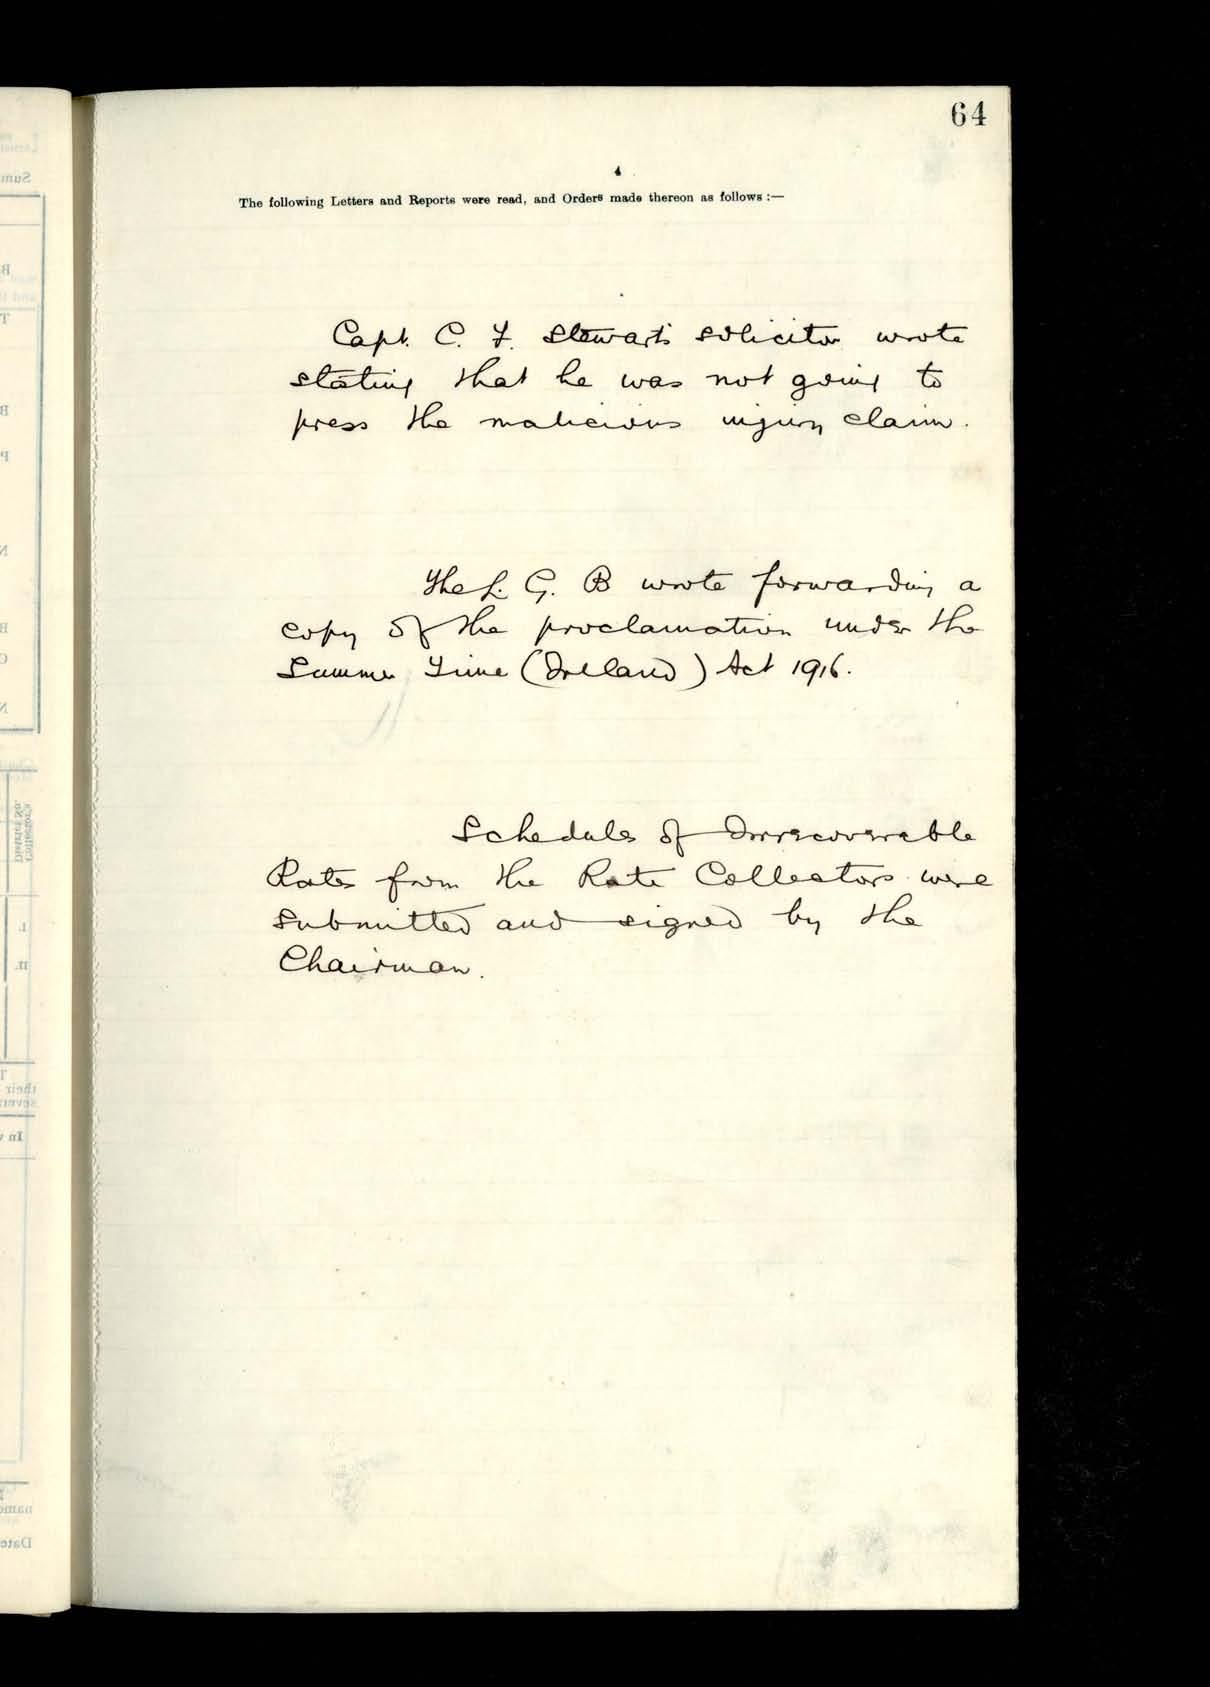 64
4
The following Letters and Reports were read, and Orders made thereon as follows :—
Capt. C. F. Stewart's solicitor wrote
stating that he was not going to
press the malicious injury claim.
The L. G. B wrote forwarding a
copy of the proclamation under the
Summer Time (Ireland) Act 1916.
Schedules of Irrecoverable
Rates from the Rate Collectors were
submitted and signed by the
Chairman.